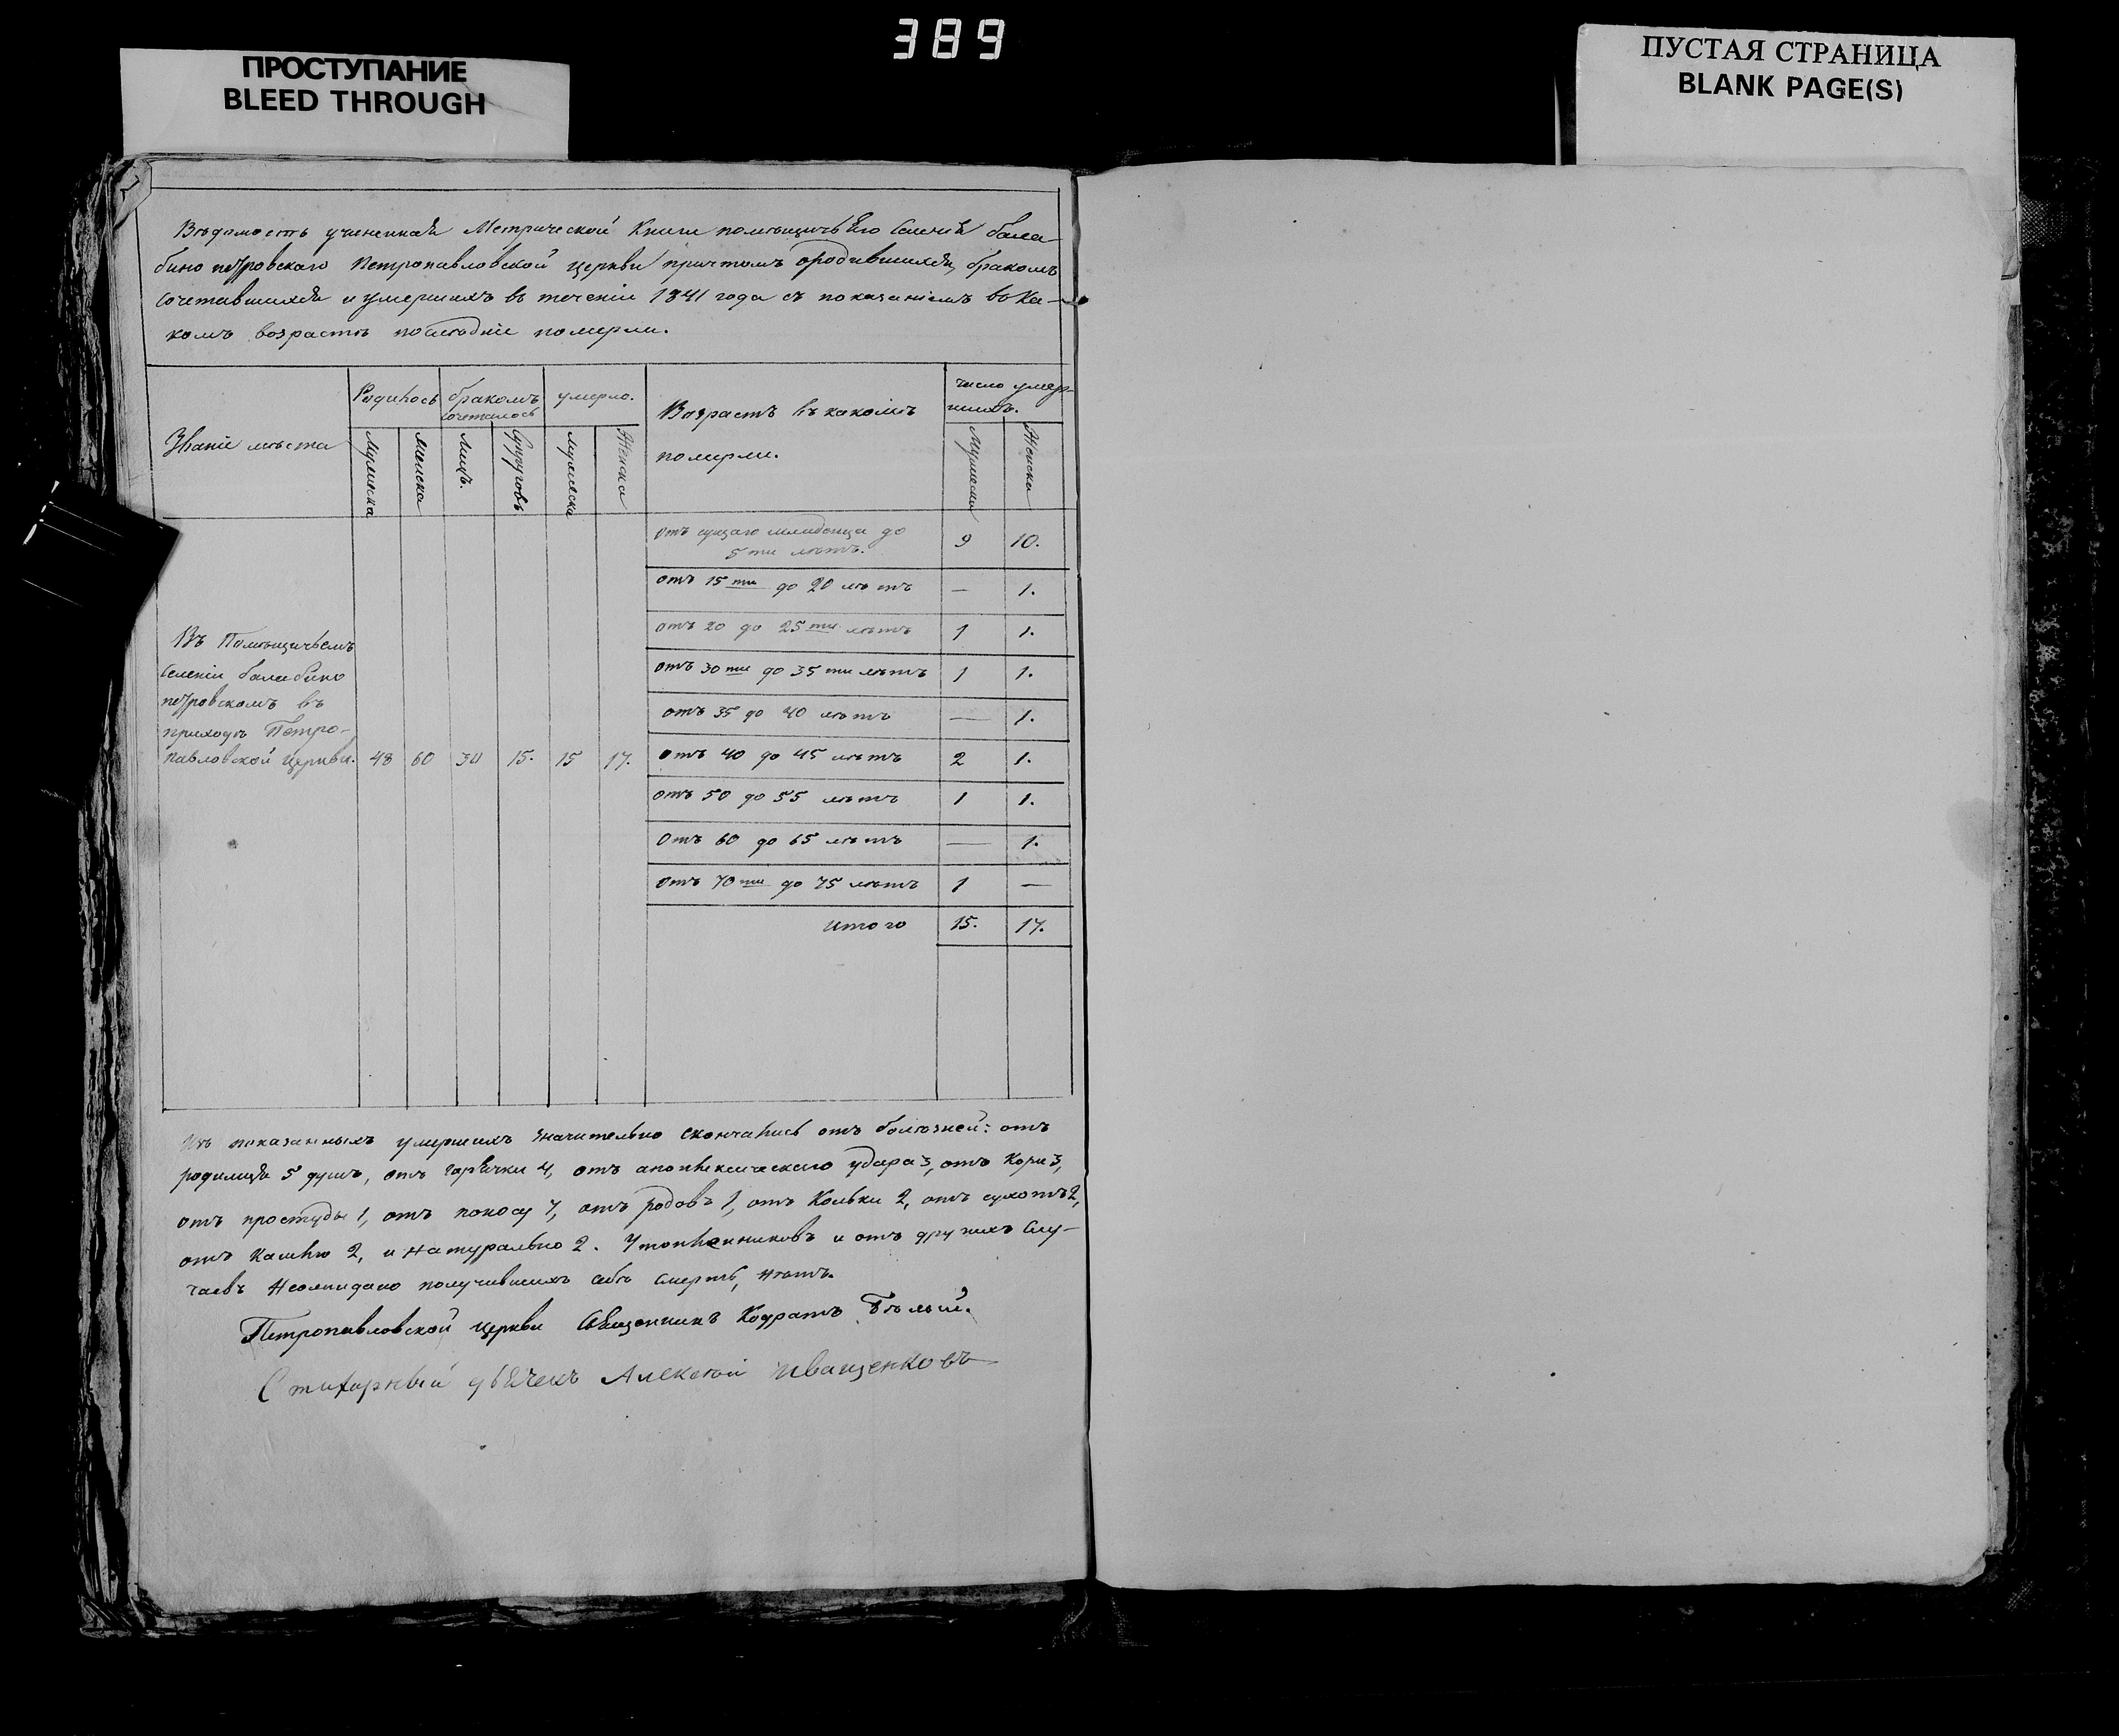 389
ПРОСТУПАНИЕ
BLEED THROUGH
ПУСТАЯ СТРАНИЦА
BLANK PAGE(S)
Вѣдомость учиненная Метрической Книги помѣщичьяго Селенія бала
бино петровскаго Петропавловской церкви причтомъ ородившихся, бракомъ
сочетавшихся и умершихъ въ теченіи 1841 года съ показаніемъ въ ка-
комъ возрастѣ послѣдніе померли.
Званіе мѣста
Родилось
бракомъ
сочеталось
умерло.
Возрастъ въ какомъ
померли.
число умер-
шихъ.
Мужеска
Женска
Лицъ.
Супруговъ
Мужеска
Женска
Мужеска
Женска
отъ сущаго младенца до
5ти лѣтъ. 9 10.
отъ 15ти до 20 лѣтъ — 1.
отъ 20 до 25ти лѣтъ 1 1.
отъ 30ти до 35ти лѣтъ 1 1.
отъ 35 до 40 лѣтъ — 1.
отъ 40 до 45 лѣтъ 2 1.
отъ 50 до 55 лѣтъ 1 1.
отъ 60 до 65 лѣтъ — 1.
отъ 70ти до 75 лѣтъ 1 —
итого 15. 17.
Въ Помѣщичьемъ
Селеніи балабино
петровскомъ въ
приходѣ Петро-
павловской церкви. 48 60 30 15. 15 17.
Изъ показанныхъ умершихъ значительно скончались отъ болѣзней: отъ
родимца 5 душъ, отъ горячки 4, отъ апоплексическаго удара 3, отъ Кори 3,
отъ простуды 1, отъ поносу 7, отъ родовъ 1, отъ Кольки 2, отъ сухотъ 2,
отъ кашлю 2, и натурально 2. Утопленниковъ и отъ другихъ слу-
чаевъ Неожидано получившихъ себѣ смерть, нѣтъ.
Петропавловской церкви Священникъ Кодратъ Бѣлый.
Стихарный дьячекъ Алексѣй Иващенковъ